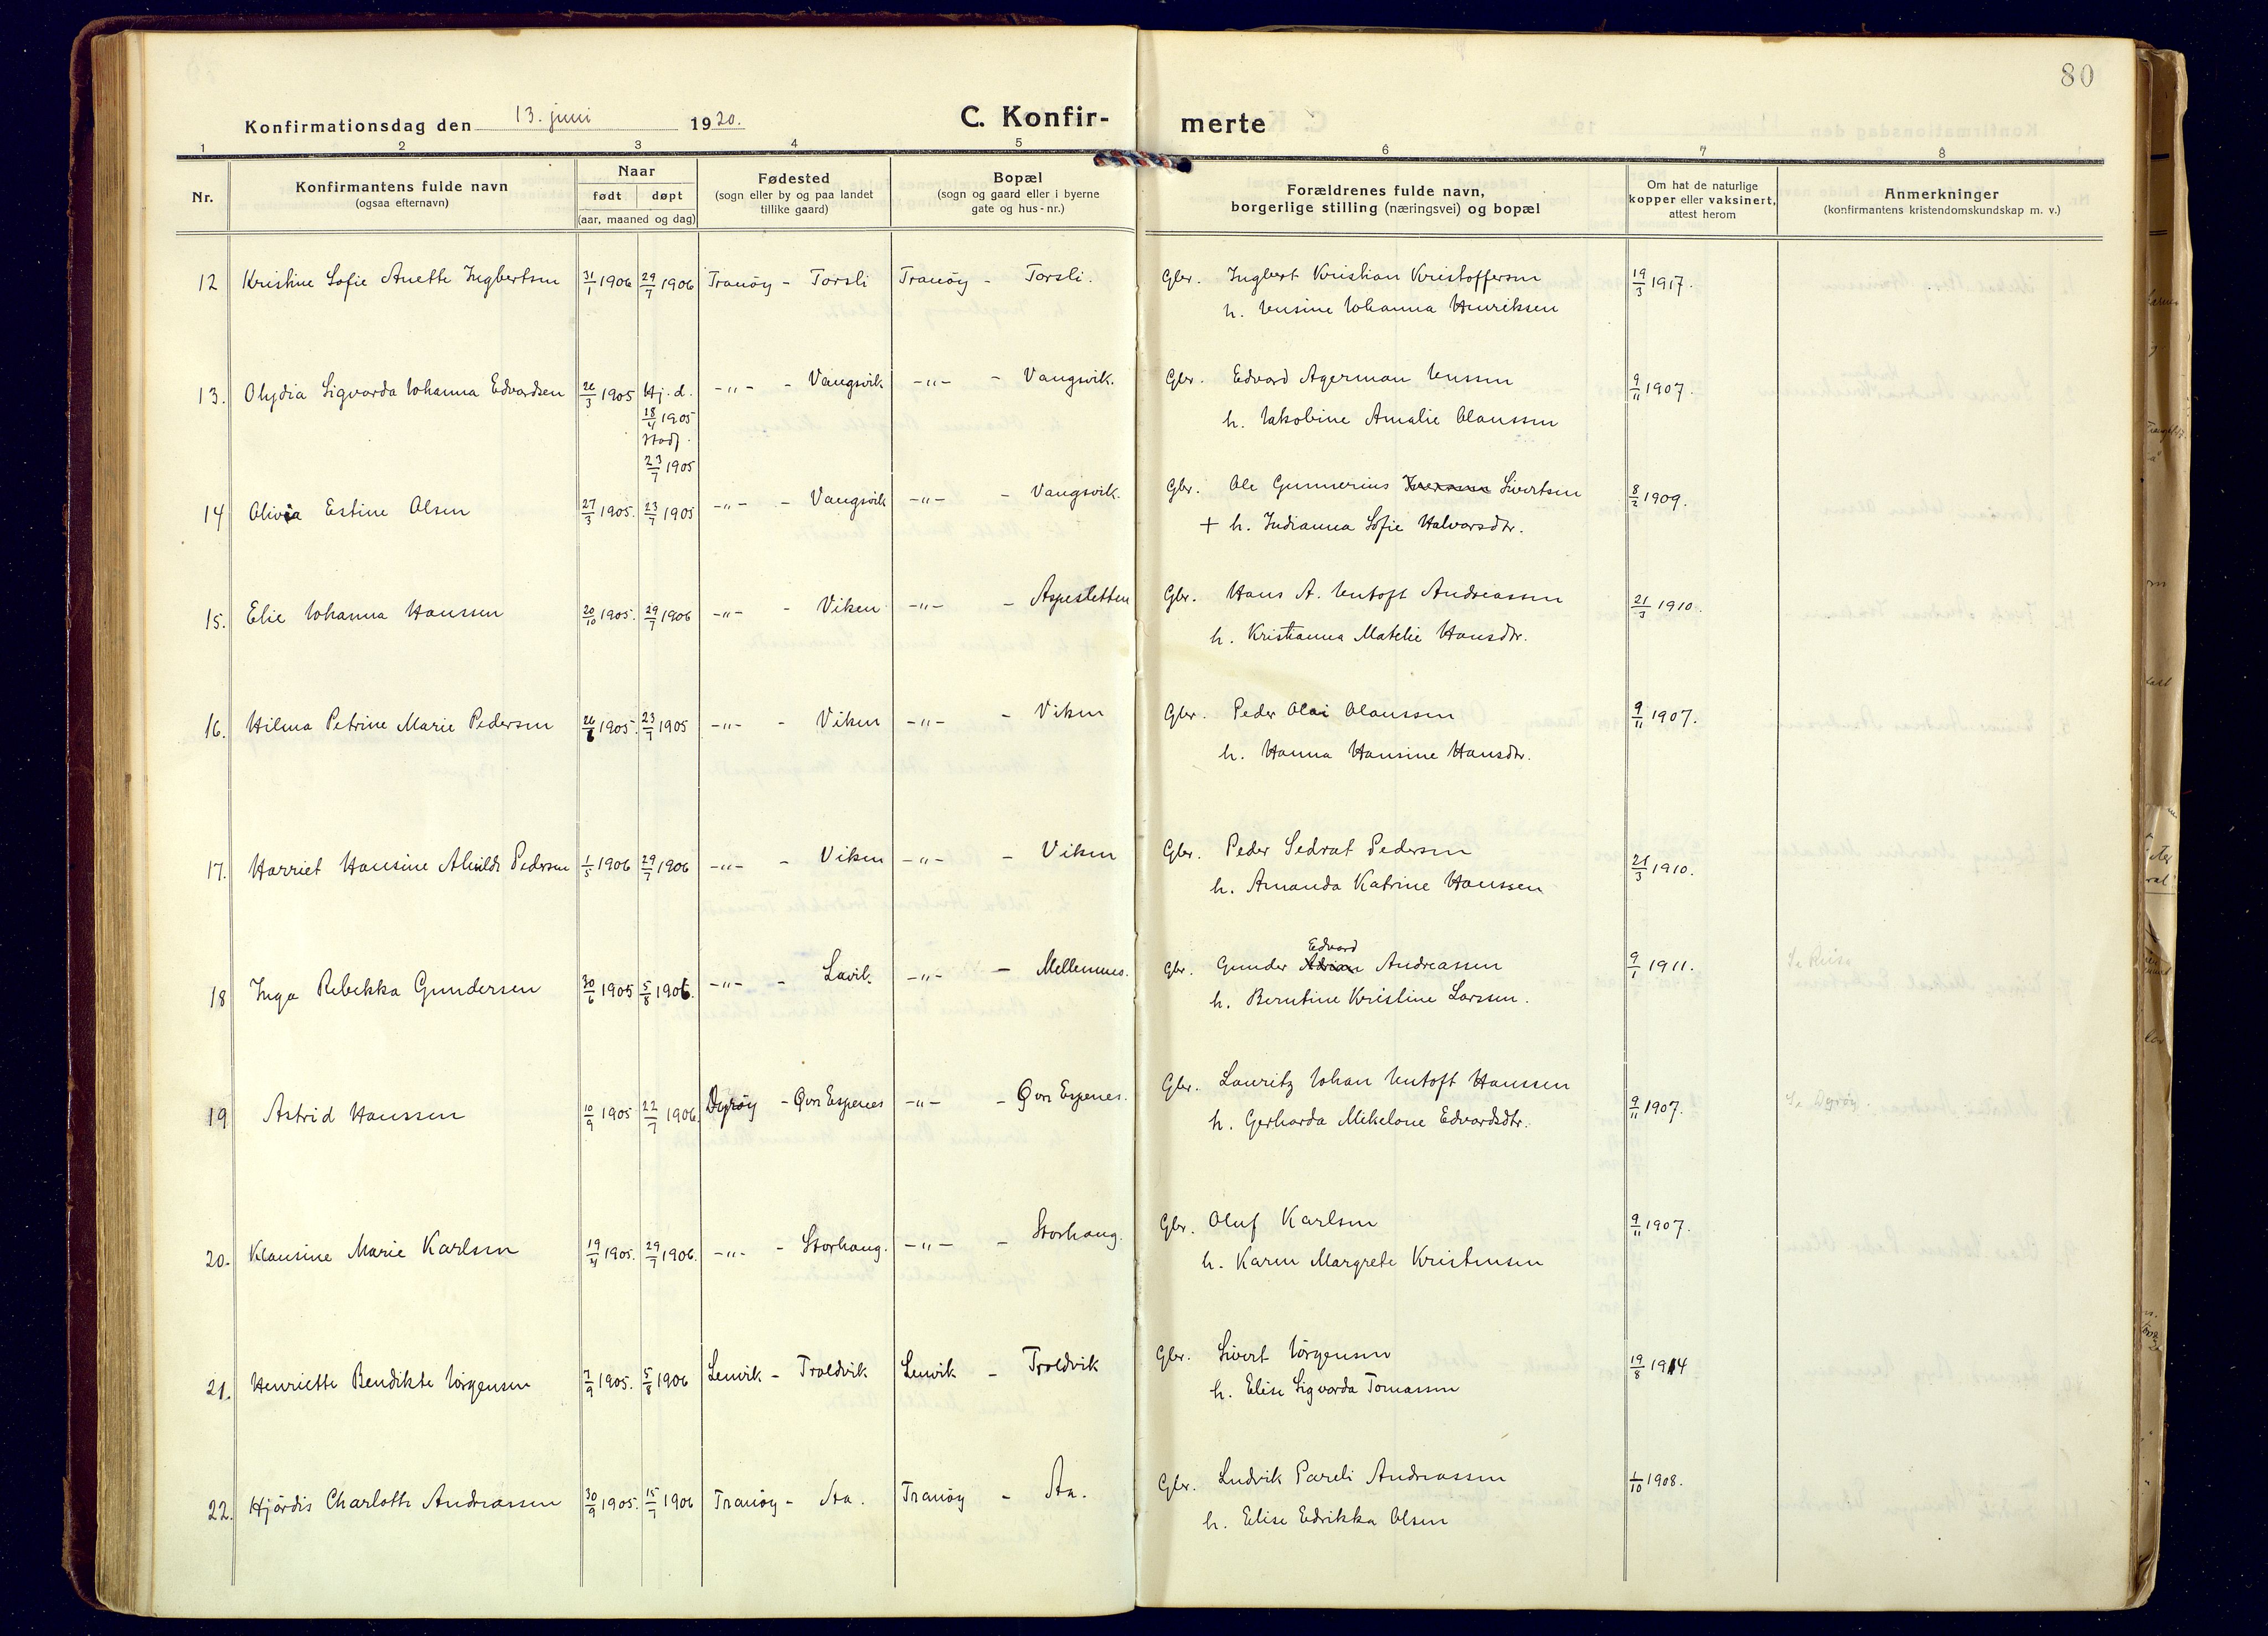 80
Konfirmationsdag den 13. juni 1920.
C. Konfirmerte
1 2 3 4 5 6 7 8
Nr.
Konfirmantens fulde navn
(ogsaa efternavn)
Naar
født døpt
(aar, maaned og dag)
Fødested
(sogn eller by og paa landet
tillike gaard)
Bopæl
(sogn og gaard eller i byerne
gate og hus-nr.)
Forældrenes fulde navn,
borgerlige stilling (næringsvei) og bopæl
Om hat de naturlige
kopper eller vaksinert,
attest herom
Anmerkninger
(konfirmantens kristendomskundskap m. v.)
12 Kristine Sofie Anette Ingbertsen 31/1 1906 29/7 1906 Tranöy - Torsli Tranöy - Torsli. Gbr. Ingbert Kristian Kristoffersen 19/3 1917.
h. Jensine Johanna Henriksen
13. Olydia Sigvarda Johanna Edvardsen 26/3 1905 Hj. d. -"- - Vangsvik -"- - Vangsvik. Gbr. Edvard Agerman Jenssen 9/11 1907.
18/4 1905 h. Jakobine Amalie Olaussen
Stadf.
23/7 1905
14 Olivia Estine Olsen 27/3 1905. 23/7 1905 -"- - Vangsvik -"- - Vangsvik. Gbr. Ole Gunnerius Sivertsen 8/2 1909.
+ h. Indianna Sofie Halvorsdtr.
15. Elie Johanna Hanssen 20/10 1905. 29/7 1906 -"- - Viken -"- - Aspesletten Gbr. Hans A. Jentoft Andreassen 21/3 1910.
h. Kristianna Matelie Hansdtr.
16. Hilma Petrine Marie Pedersen 26/6 1905. 23/7 1905 -"- - Viken -"- - Viken Gbr. Peder Olai Olaussen 9/11 1907.
h. Hanna Hansine Hansdtr.
17. Harriet Hansine Alvilde Pedersen 1/5 1906 29/7 1906 -"- - Viken -"- - Viken Gbr. Peder Sedrat Pedersen 21/3 1910.
h. Amanda Katrine Hanssen
18 Inga Rebekka Gundersen 30/6 1905 5/8 1906. -"- - Lavik. -"- - Mellemnes. Gbr. Gunder Adrian Edvard Andreassen 9/1 1911.
h. Berntine Kristine Larssen.
19 Astrid Hanssen 10/9 1905 22/7 1906. Dyröy - Övre Espenes -"- - Övre Espenes. Gbr. Lauritz Johan Jentoft Hanssen 9/11 1907. Se Dyröy.
h. Gerharda Mikelone Edvardsdtr.
20. Klausine Marie Karlsen 19/4 1905. 29/7 1906. -"- - Storhaug. -"- - Storhaug. Gbr. Oluf Karlsen 9/11 1907.
h. Karen Margrete Kristensen
21. Henriette Bendikte Jörgensen 7/9 1905. 5/8 1906 Lenvik - Troldvik Lenvik - Troldvik Gbr. Sivert Jörgensen 19/8 1914
h. Elise Sigvarda Tomassen
22. Hjördis Charlotte Andreassen 30/9 1905. 15/7 1906 Tranöy - Aa. Tranöy - Aa. Gbr. Ludvik Pareli Andreassen 1/10 1908.
h. Elise Edrikka Olsen